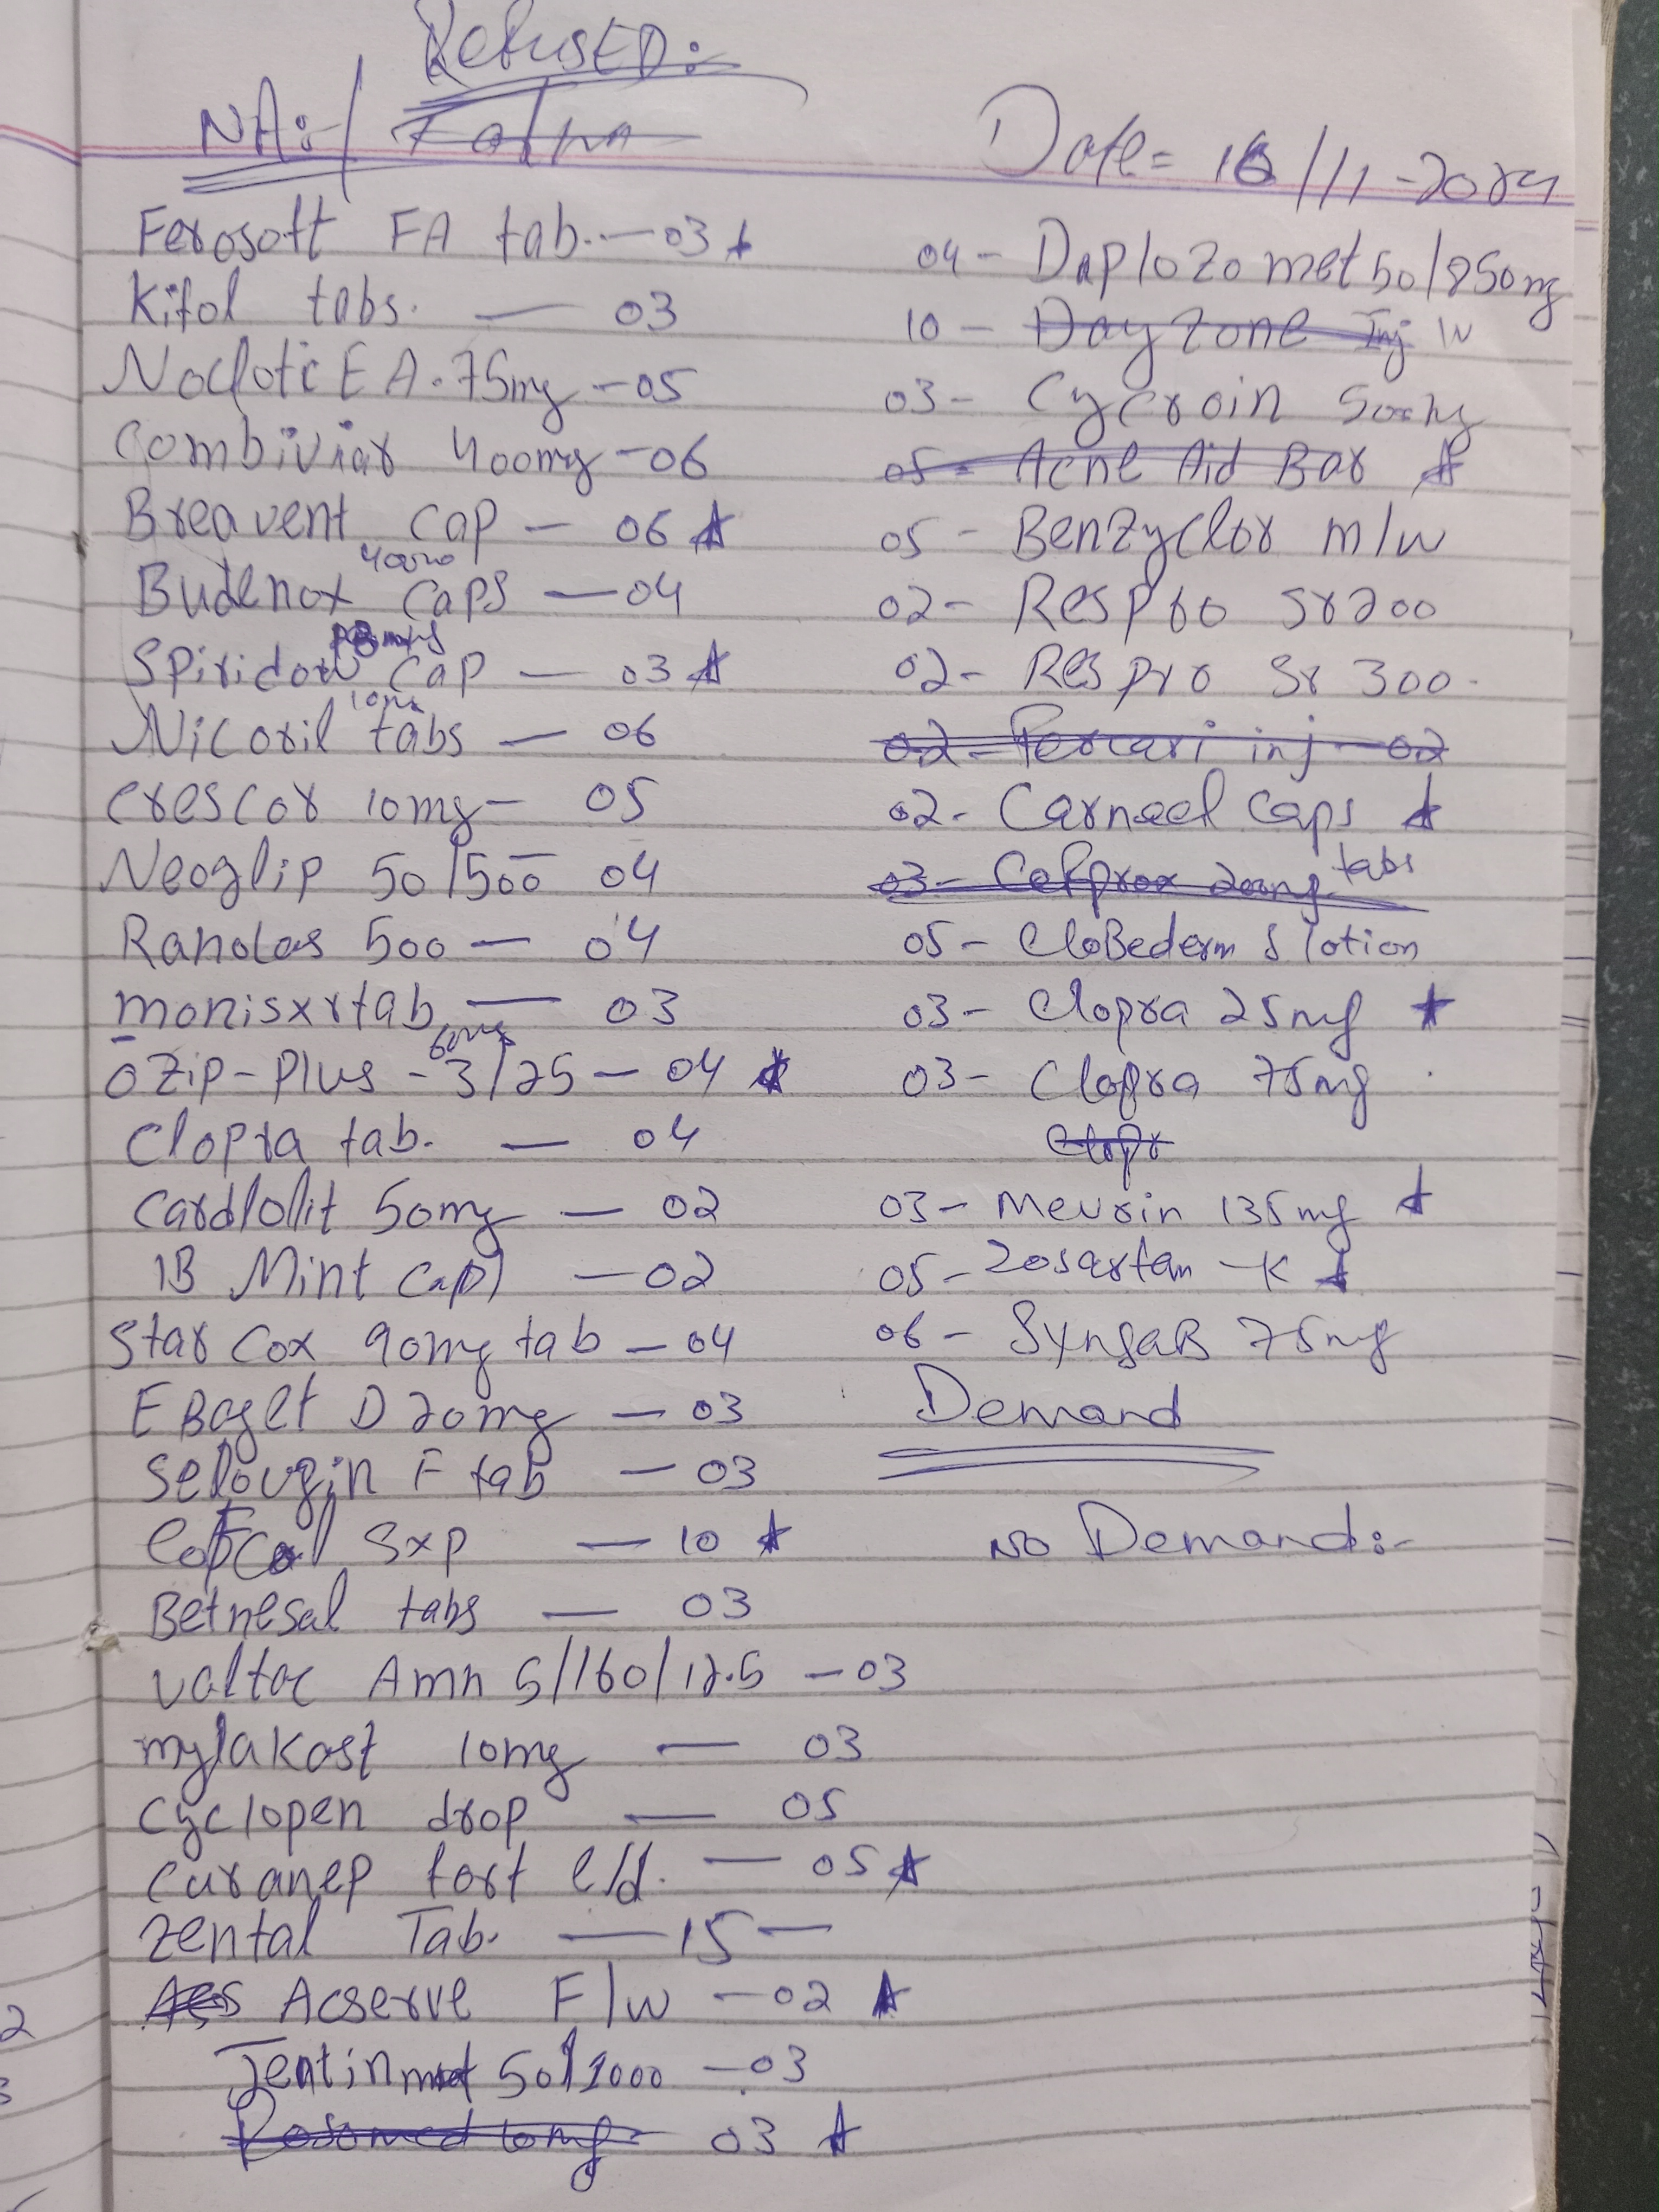 RefusED:
NA:-/
Date= 16/11-2024
Ferosoft FA tab.—03
Kifol tabs. — 03
Noclotic E A.75mg -05
Combiviar 400mg -06
Breavent cap — 06
400
Budenox caps — 04
Spiridow cap — 03
10mg
Nicoril tabs — 06
crescor 10mg — 05
Neoglip 50/500 04
Ranolas 500 — 04
monisxrtab — 03
60mg
OZip-Plus -3/25 — 04
Clopra tab. — 04
Cardlolit 50mg — 02
IB Mint cap) — 02
Star Cox 90mg tab — 04
E Baget D 20mg — 03
Selougin F tab — 03
Sxp — 10
Betnesal tabs — 03
valtac Amn 5/160/12.5 -03
mylakast 10mg — 03
Cyclopen drop — 05
Curanep fort e/d. — 05
Zental Tab. — 15 —
Acserve F/w — 02
Jentinmet 50/1000 -03
Rosomed 10mg 03
04- Daplozo met 50/850mg
10- Dayzone Inj IV
03- Cycroin 500mg
05- Acne Aid Bar
05- Benzyclor m/w
02- Respro Sr 200
02- Respro Sr 300
02- Fercari inj -02
02- Carneel caps
03- Cefprox 200mg tabs
05- CloBederm S lotion
03- Clopra 25mg
03- Clopra 75mg
Clopr
03- Mevrin 135mg
05- Zosartan -K
06- SyngaB 75mg
Demand
NO Demand:-